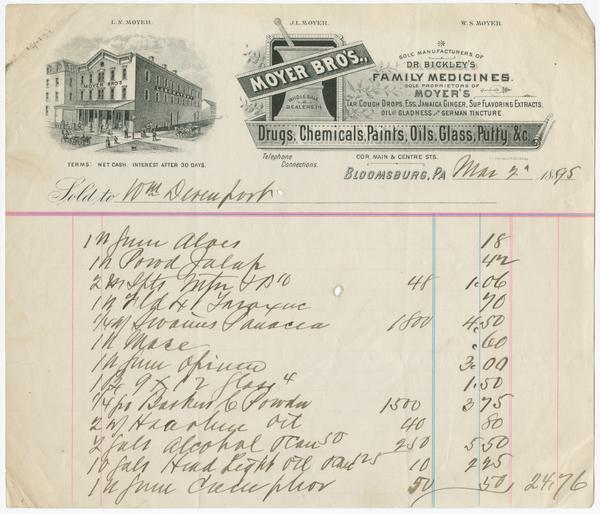 L.N. MOYER.
J.L. MOYER.
W.S. MOYER.
MOYER BRO'S
MOYER BRO'S.,
WHOLESALE
DEALERS IN
SOLE MANUFACTURERS OF
DR. BICKLEY'S
FAMILY MEDICINES.
SOLE PROPRIETORS OF
MOYER'S
TAR COUGH DROPS, ESS. JAMAICA GINGER, SUP. FLAVORING EXTRACTS,
OIL OF GLADNESS AND GERMAN TINCTURE.
Drugs, Chemicals, Paints, Oils, Glass, Putty, &c.
TERMS: NET CASH. INTEREST AFTER 30 DAYS.
Telephone Connections.
COR. MAIN & CENTRE STS.
BLOOMSBURG, PA Mar 2" 1895
Sold to Wm Devenport
1 lb Gum Aloes 18
1 lb Powd Jalap 42
48 1.06
1 lb 70
1/4 Swaims Panacea 1800 4.50
1 lb Mace .60
1 lb Gum Opium 3.00
9 x 12 Glass 1.50
1/4 Barkers Powder 1500 3 75
2 Haarlem Oil 40 80
2 Gals Alcohol & Can 50 250 5 50
10 Gals Head Light Oil & Can 125 10 2 25
1 lb Gum Camphor 50 50 24.76